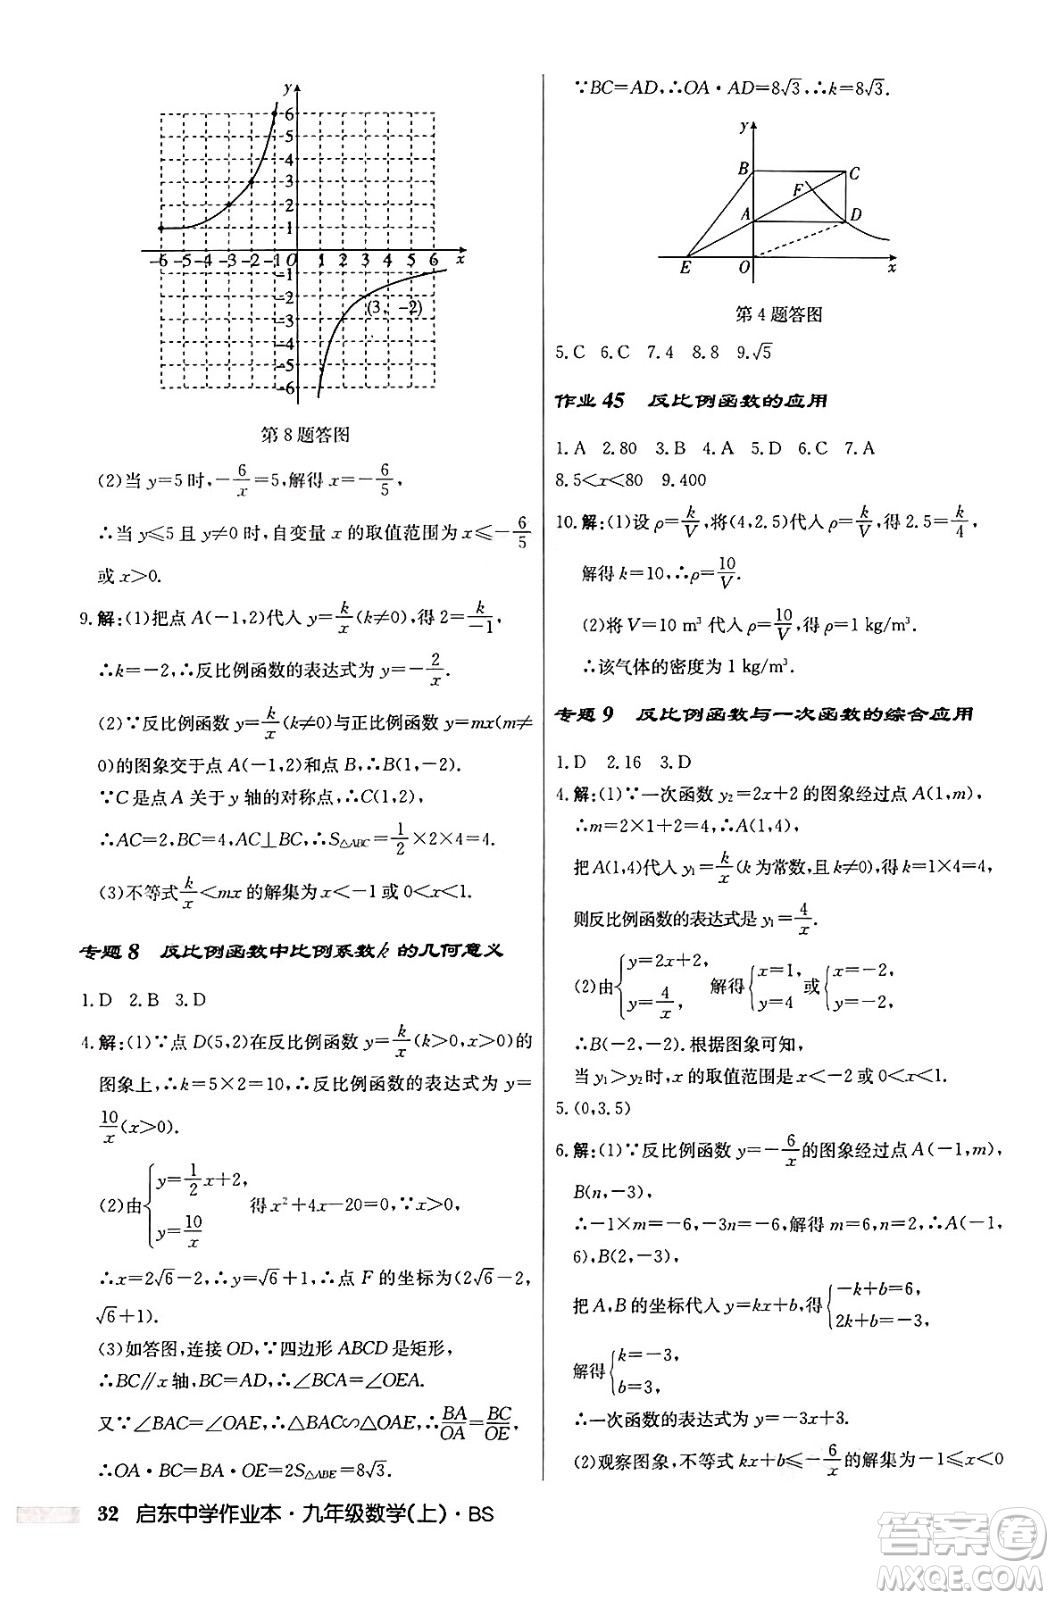 y
6
5
4
3
2
1
-6 -5 -4 -3 -2 -1 O 1 2 3 4 5 6 x
-1
-2
(3, -2)
-3
-4
-5
-6
第8题答图
(2)当 y=5 时,-6/x=5,解得 x=-6/5,
∴当 y≤5 且 y≠0 时,自变量 x 的取值范围为 x≤-6/5
或 x>0.
9.解:(1)把点 A(-1,2)代入 y=k/x(k≠0),得 2=k/-1,
∴k=-2,∴反比例函数的表达式为 y=-2/x.
(2)∵反比例函数 y=k/x(k≠0)与正比例函数 y=mx(m≠
0)的图象交于点 A(-1,2)和点 B,∴B(1,-2).
∵C 是点 A 关于 y 轴的对称点,∴C(1,2),
∴AC=2,BC=4,AC⊥BC,∴S△ABC=1/2×2×4=4.
(3)不等式 k/x<mx 的解集为 x<-1 或 0<x<1.
专题 8 反比例函数中比例系数 k 的几何意义
1.D 2.B 3.D
4.解:(1)∵点 D(5,2)在反比例函数 y=k/x(k>0,x>0)的
图象上,∴k=5×2=10,∴反比例函数的表达式为 y=
10/x(x>0).
(2)由{y=1/2x+2, y=10/x 得 x²+4x-20=0,∵x>0,
∴x=2√6-2,∴y=√6+1,∴点 F 的坐标为(2√6-2,
√6+1).
(3)如答图,连接 OD,∵四边形 ABCD 是矩形,
∴BC∥x 轴,BC=AD,∴∠BCA=∠OEA.
又∵∠BAC=∠OAE,∴△BAC∽△OAE,∴BA/OA=BC/OE,
∴OA·BC=BA·OE=2S△ABE=8√3.
32 启东中学作业本·九年级数学(上)·BS
∵BC=AD,∴OA·AD=8√3,∴k=8√3.
y
B
C
F
A
D
E
O
x
第4题答图
5.C 6.C 7.4 8.8 9.√5
作业 45 反比例函数的应用
1.A 2.80 3.B 4.A 5.D 6.C 7.A
8.5<x<80 9.400
10.解:(1)设 ρ=k/V,将(4,2.5)代入 ρ=k/V,得 2.5=k/4,
解得 k=10,∴ρ=10/V.
(2)将 V=10 m³ 代入 ρ=10/V,得 ρ=1 kg/m³.
∴该气体的密度为 1 kg/m³.
专题 9 反比例函数与一次函数的综合应用
1.D 2.16 3.D
4.解:(1)∵一次函数 y₂=2x+2 的图象经过点 A(1,m),
∴m=2×1+2=4,∴A(1,4),
把 A(1,4)代入 y₁=k/x(k 为常数,且 k≠0),得 k=1×4=4,
则反比例函数的表达式是 y₁=4/x.
(2)由{y=2x+2, y=4/x, 解得{x=1, y=4 或{x=-2, y=-2,
∴B(-2,-2). 根据图象可知,
当 y₁>y₂时,x 的取值范围是 x<-2 或 0<x<1.
5.(0,3.5)
6.解:(1)∵反比例函数 y=-6/x的图象经过点 A(-1,m),
B(n,-3),
∴-1×m=-6,-3n=-6,解得 m=6,n=2,∴A(-1,
6),B(2,-3),
把 A,B 的坐标代入 y=kx+b,得{-k+b=6, 2k+b=-3,
解得{k=-3, b=3,
∴一次函数的表达式为 y=-3x+3.
(2)观察图象,不等式 kx+b≤-6/x的解集为-1≤x<0
答案圈